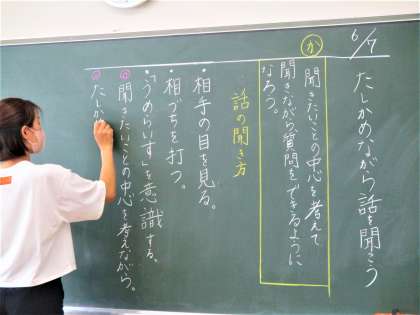 6/7
たしかめながら話を聞こう
か
聞きたいことの中心を考えて
聞きながら質問をできるように
なろう。
話の聞き方
・相手の目を見る。
・相づちを打つ。
・「うめらいす」を意識する。
聞きたいことの中心を考えながら。
たしか